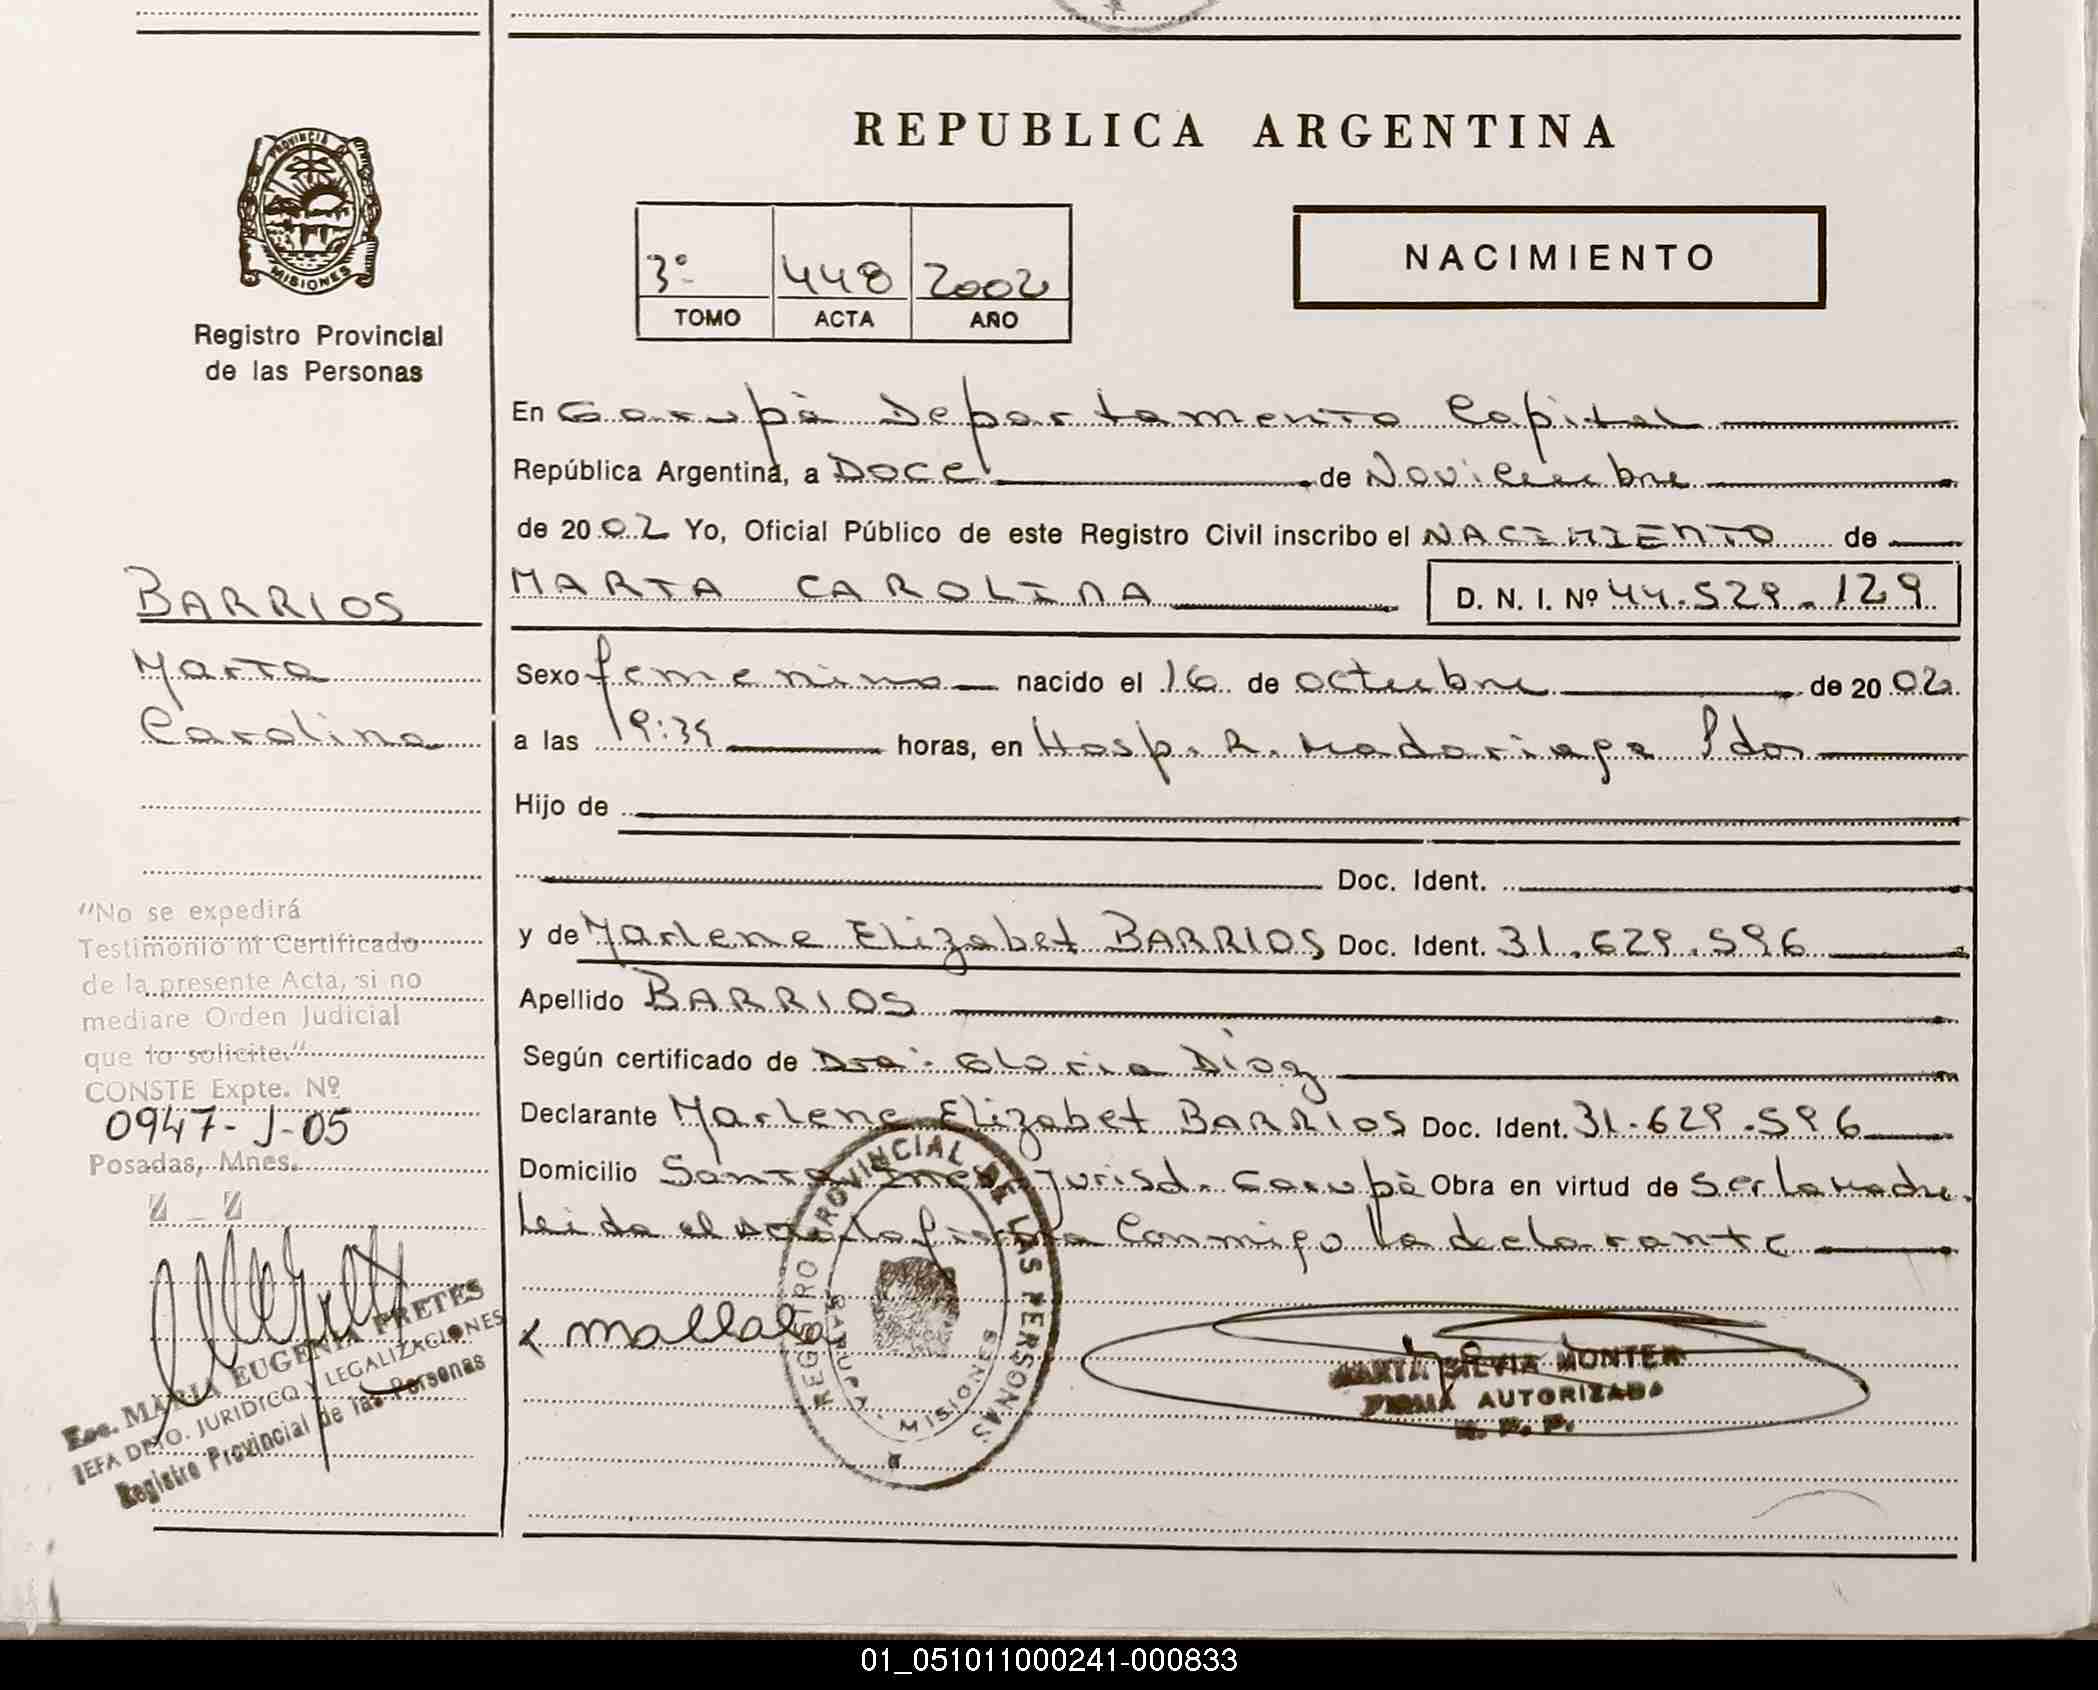 REPUBLICA ARGENTINA
PROVINCIA
MISIONES
Registro Provincial
de las Personas
3º 448 2002
TOMO ACTA AÑO
NACIMIENTO
En Garupà Departamento Capital
República Argentina, a Doce de Noviembre
de 2002 Yo, Oficial Público de este Registro Civil inscribo el NACIMIENTO de
MARTA CAROLINA D. N. I. Nº 44.529.129
BARRIOS
Marta
Carolina
Sexo femenino nacido el 16 de octubre de 2002
a las 19:34 horas, en Hosp. R. Madariaga Pdas
Hijo de
Doc. Ident.
y de Marlene Elizabet BARRIOS Doc. Ident. 31.629.596
Apellido BARRIOS
Según certificado de Dra. Gloria Díaz
Declarante Marlene Elizabet BARRIOS Doc. Ident. 31.629.596
Domicilio Santa Ines Jurisd. Garupà Obra en virtud de Ser la Madre.
Leida el acta la firma Conmigo la declarante
"No se expedirá
Testimonio ni Certificado
de la presente Acta, si no
mediare Orden Judicial
que lo solicite."
CONSTE Expte. Nº
0947-J-05
Posadas, Mnes.
Esc. MARIA EUGENIA PRETES
JEFA DPTO. JURIDICO Y LEGALIZACIONES
Registro Provincial de las Personas
REGISTRO PROVINCIAL DE LAS PERSONAS
GARUPA - MISIONES
MARTA SILVIA MONTER
FIRMA AUTORIZADA
R. P. P.
01_051011000241-000833